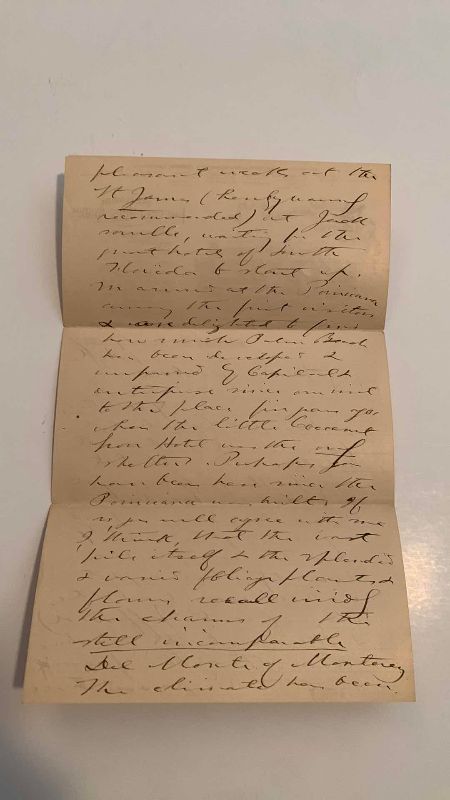 pleasant weeks at the
St James (hereby warmly
recommended) at Jack
sonville, waiting for the
great hotels of South
Florida to start up.
We arrived at the Poinciana
among the first visitors
& were delighted to find
how much Palm Beach
has been developed &
improved by Capital &
enterprise since our visit
to the place five years ago
when the little Cocoanut
Grove Hotel was the only
shelter. Perhaps you
have been here since the
Poinciana was built. If
so you will agree with me
I think, that the vast
pile itself & the splendid
& varied foliage plants &
flowers recall vividly
the charms of the
still incomparable
Del Monte of Monterey
The climate has been